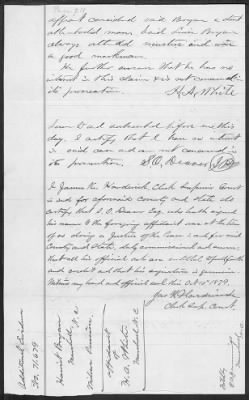 affiant considered said Bryan a stout
able-bodied man. Said Simon Bryan
always attended musters and was
a good marksman.
He further swears that he has no
interest in this claim & is not concerned in
its prosecution.
H. A. White
Sworn to and subscribed before me this
day. I certify that I have no interest
in said case and am not concerned in
its prosecution.
I James H. Hardwick Clerk Superior Court
in and for aforesaid County and State do
certify that S. O. Deaver Esq. who hath signed
his name to the foregoing affidavit was at the time
of so doing a Justice of the Peace in and for said
County and State, duly commissioned and sworn:
that all his official acts are entitled to full faith
and credit and that his signature is genuine.
Witness my hand and official seal this Oct 1879.
Clerk Sup. Court.
Additional Evidence
No. 71679
Harriet Bryan
Marshall N.C.
Widow's Pension.
Affidavit
of
H. A. White
Marshall N.C.